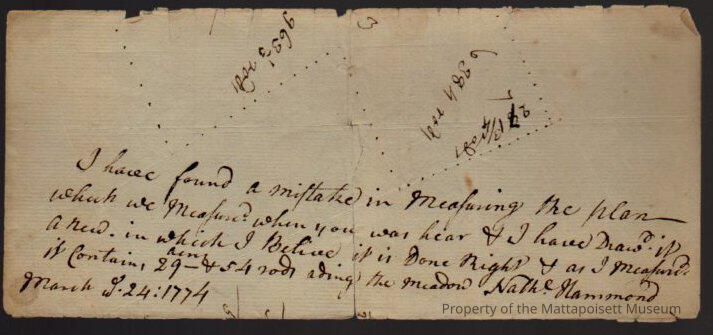 I have found a mistake in Measuring the plan
which we Measurd when you was hear & I have Drawd it
a new. in which I Belive it is Done Right & as I Measurd
it Contains 29 & 54 rods ading the meadow Nathl Hammond
March ye 24: 1774
Property of the Mattapoisett Museum